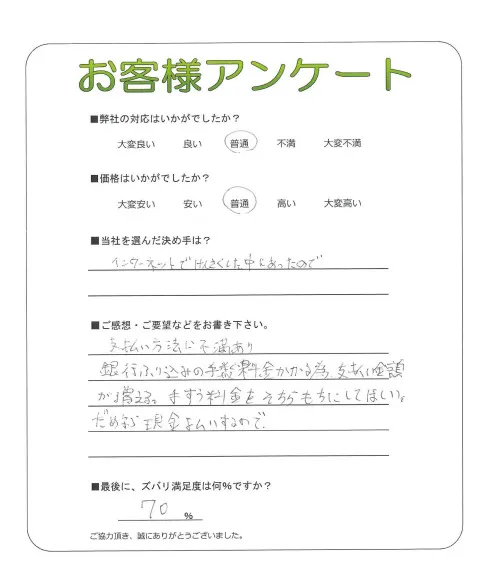 お客様アンケート
■弊社の対応はいかがでしたか？
大変良い 良い 普通 不満 大変不満
■価格はいかがでしたか？
大変安い 安い 普通 高い 大変高い
■当社を選んだ決め手は？
インターネットでけんさくした中にあったので
■ご感想・ご要望などをお書き下さい。
支払い方法に不満あり
銀行ふり込みの手数料金がかかる為、支払い金額
が増える。手すう料金をそちらもちにしてほしい。
だめなら現金払いするので
■最後に、ズバリ満足度は何％ですか？
70 ％
ご協力頂き、誠にありがとうございました。